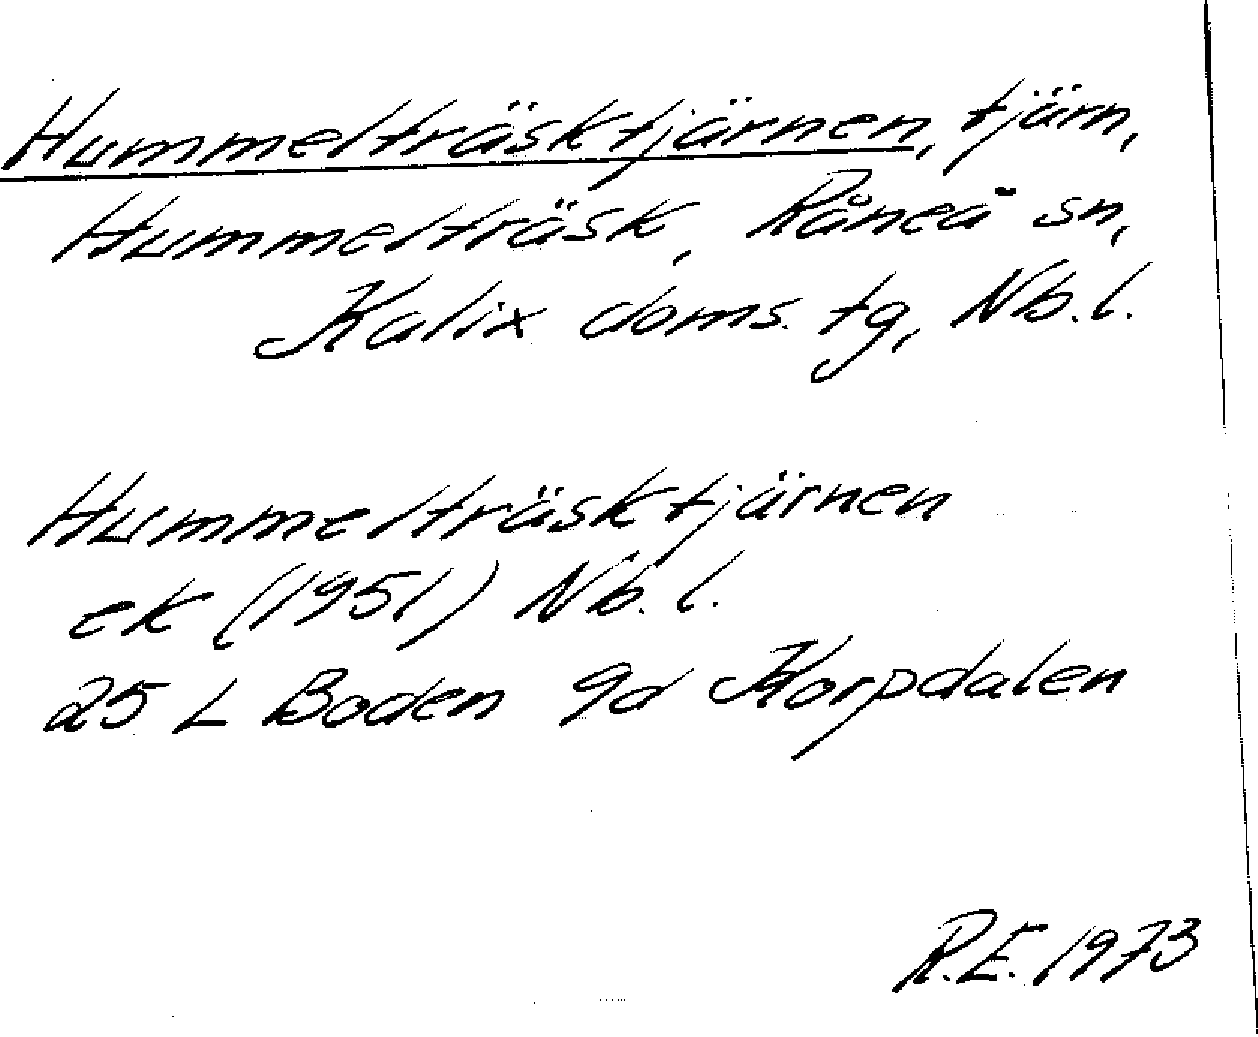 Hummelträsktjärnen, tjärn,
Hummelträsk, Råneå sn,
Kalix doms. tg, Nb. l.
Hummelträsktjärnen
ek (1951) Nb. l.
25 L Boden 9d Korpdalen
R.E. 1973